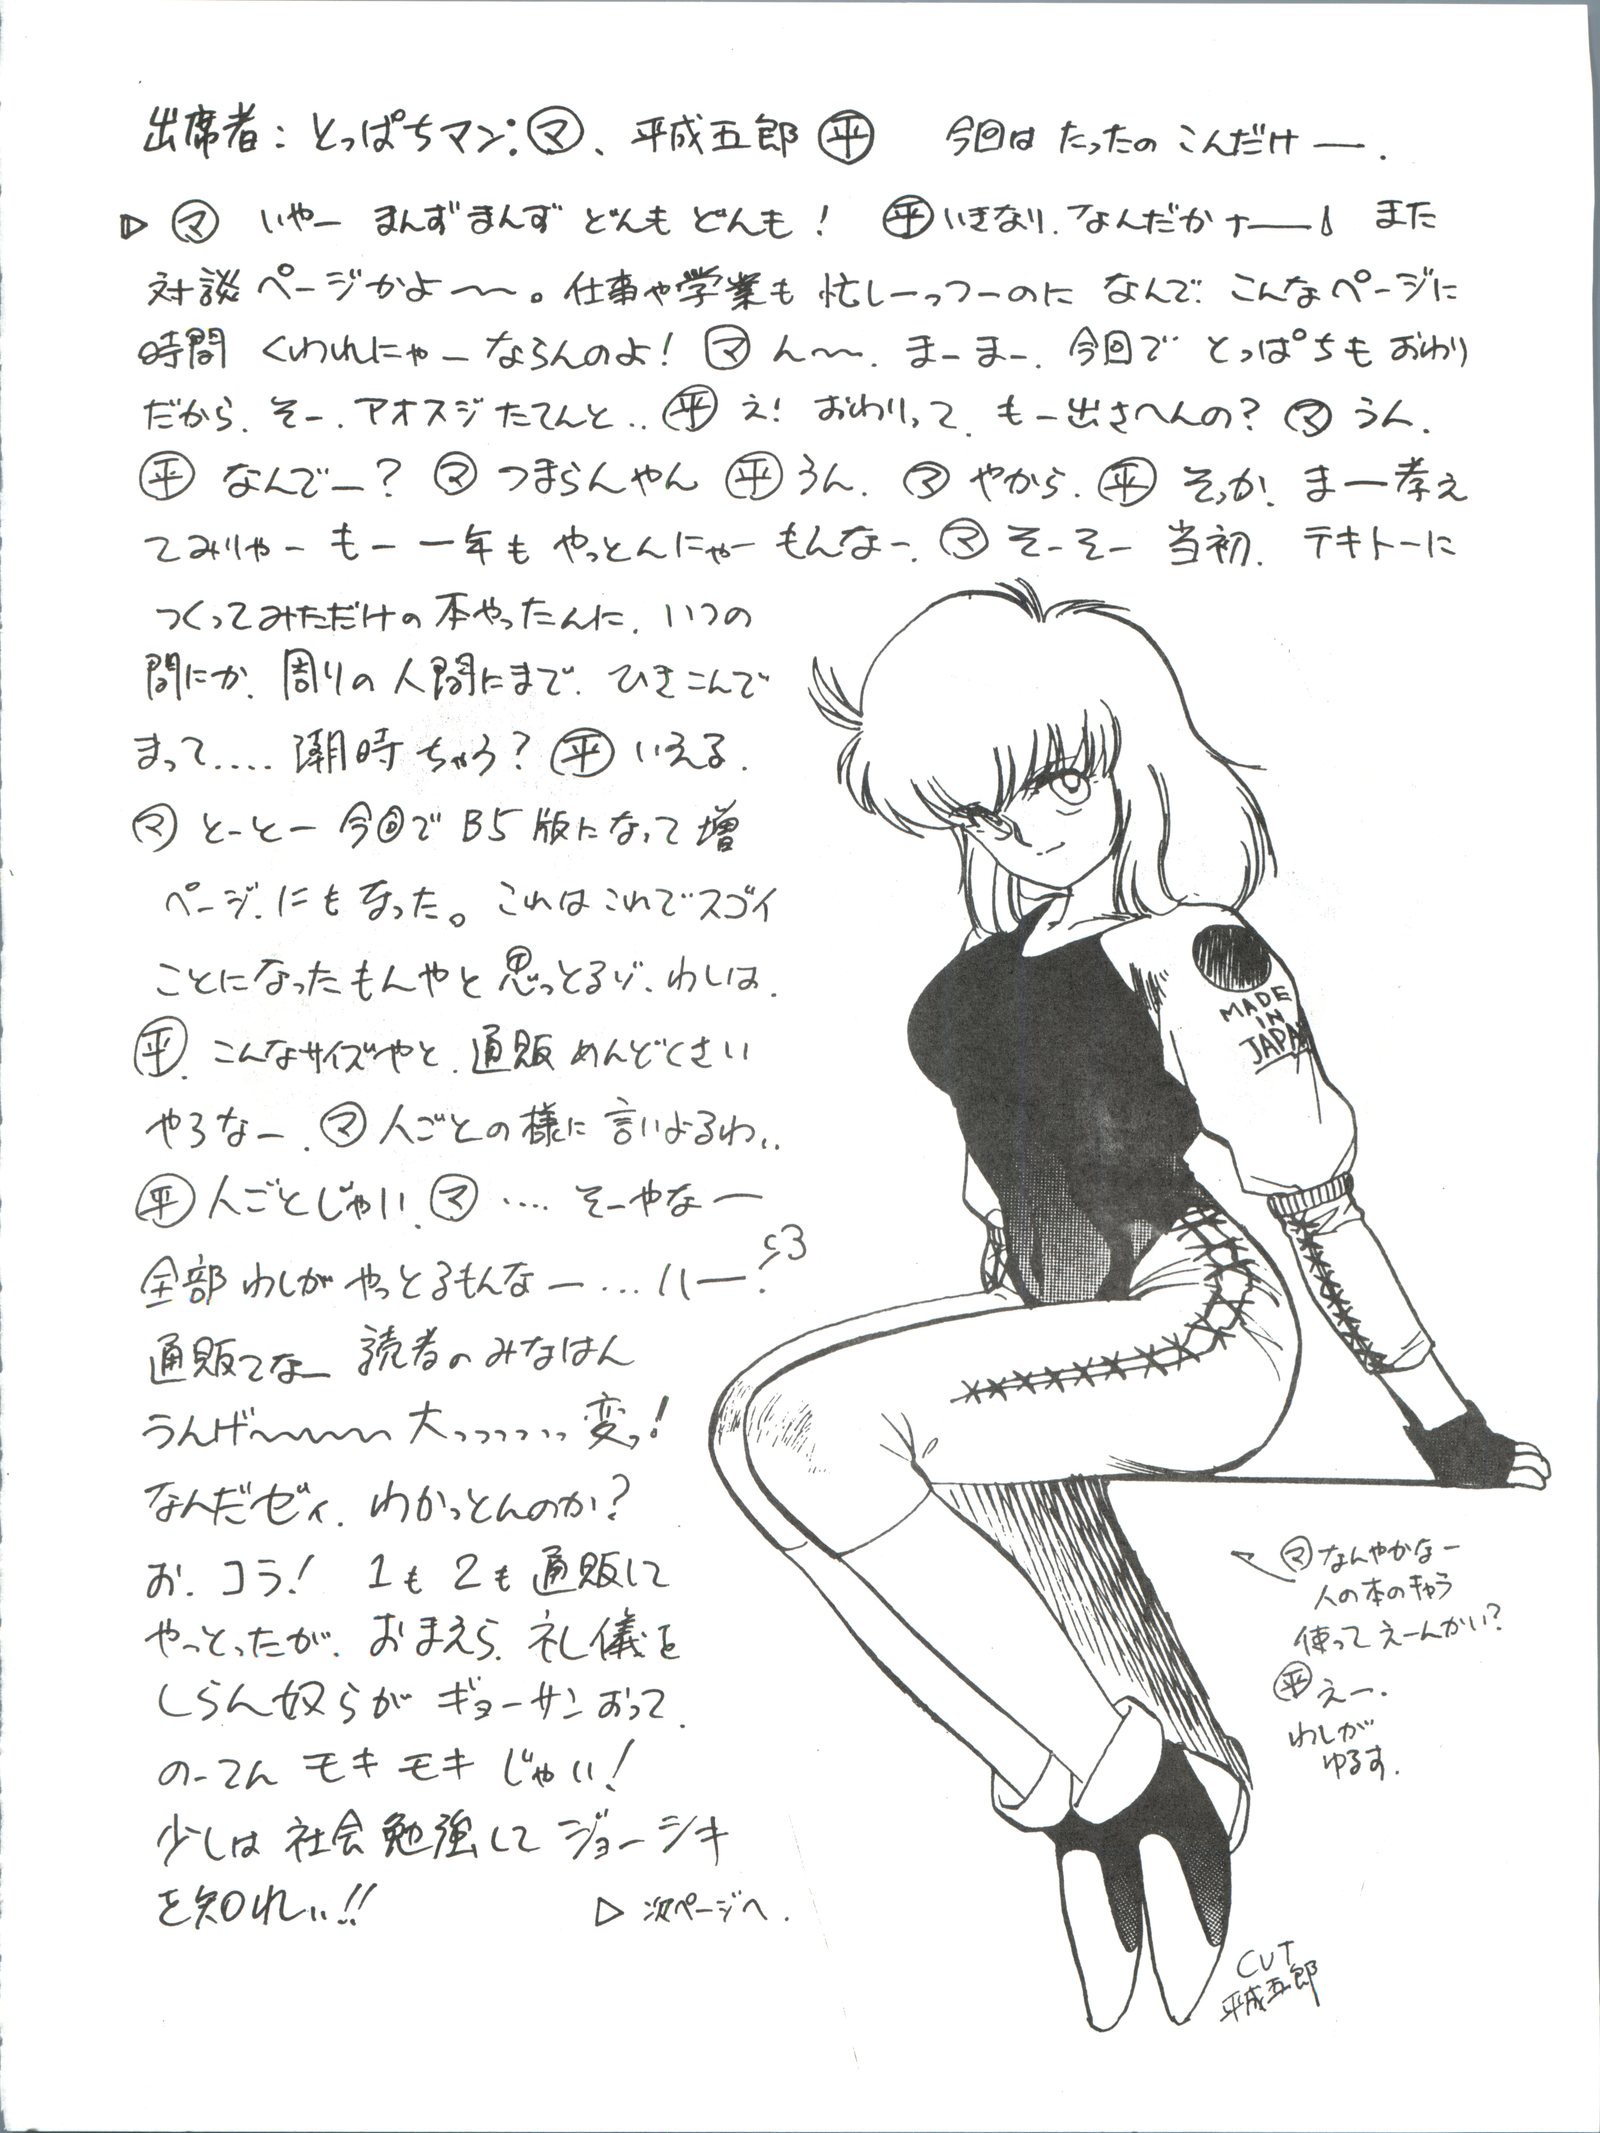 出席者：とっぱちマン.㋮、平成五郎㊤ 今回は たったの こんだけー.
▷ ㋮ いやー まんずまんず どんも どんも！ 平 いきなり、なんだかナー また
対談ページかよ〜〜。仕事や学業も 忙しーっつーのに なんで こんなページに
時間 くわれにゃーならんのよ！ ㋮ ん〜〜. まーまー. 今回で とっぱちも おわり
だから. そー. アオスジたてんと.. 平 え！ おわりって. もー出さへんの？ ㋮ うん.
平 なんでー？ ㋮ つまらんやん 平 うん. ㋮ やから. 平 そっか. まー考え
てみりゃー もー 一年も やっとんにゃー もんなー. ㋮ そーそー 当初. テキトーに
つくってみただけの 本やったんに. いつの
間にか. 周りの 人間にまで. ひきこんで
まって.... 潮時ちゃう？ 平 いえる.
㋮ とーとー 今回で B5版になって 増
ページ.にもなった。これはこれでスゴイ
ことになったもんやと 思っとるゾ. わしは.
平. こんなサイズやと. 通販 めんどくさい
やろなー. ㋮ 人ごとの様に 言いよるわ..
平 人ごとじゃい. ㋮ .... そーやなー
全部 わしがやっとるもんなー ... ハー.
通販てなー 読者の みなはん
うんげ〜〜〜〜 大っっっっっ変っ！
なんだゼィ. わかっとんのか？
お. コラ！ 1も2も 通販して
やっとったが. おまえら. 礼儀を
しらん奴らが ギョーサンおって.
のーてん モキモキ じゃい！
少しは 社会勉強して ジョーシキ
を知れぃ!!
▷ 次ページへ.
MADE
IN
JAPAN
㋮ なんやかなー
人の本のキャラ
使って えーんかい？
平 えー.
わしが
ゆるす.
CUT
平成五郎